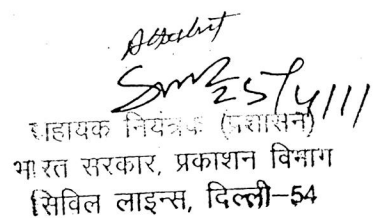 25/4/11
सहायक नियंत्रक (प्रशासन)
भारत सरकार, प्रकाशन विभाग
सिविल लाइन्स, दिल्ली-54